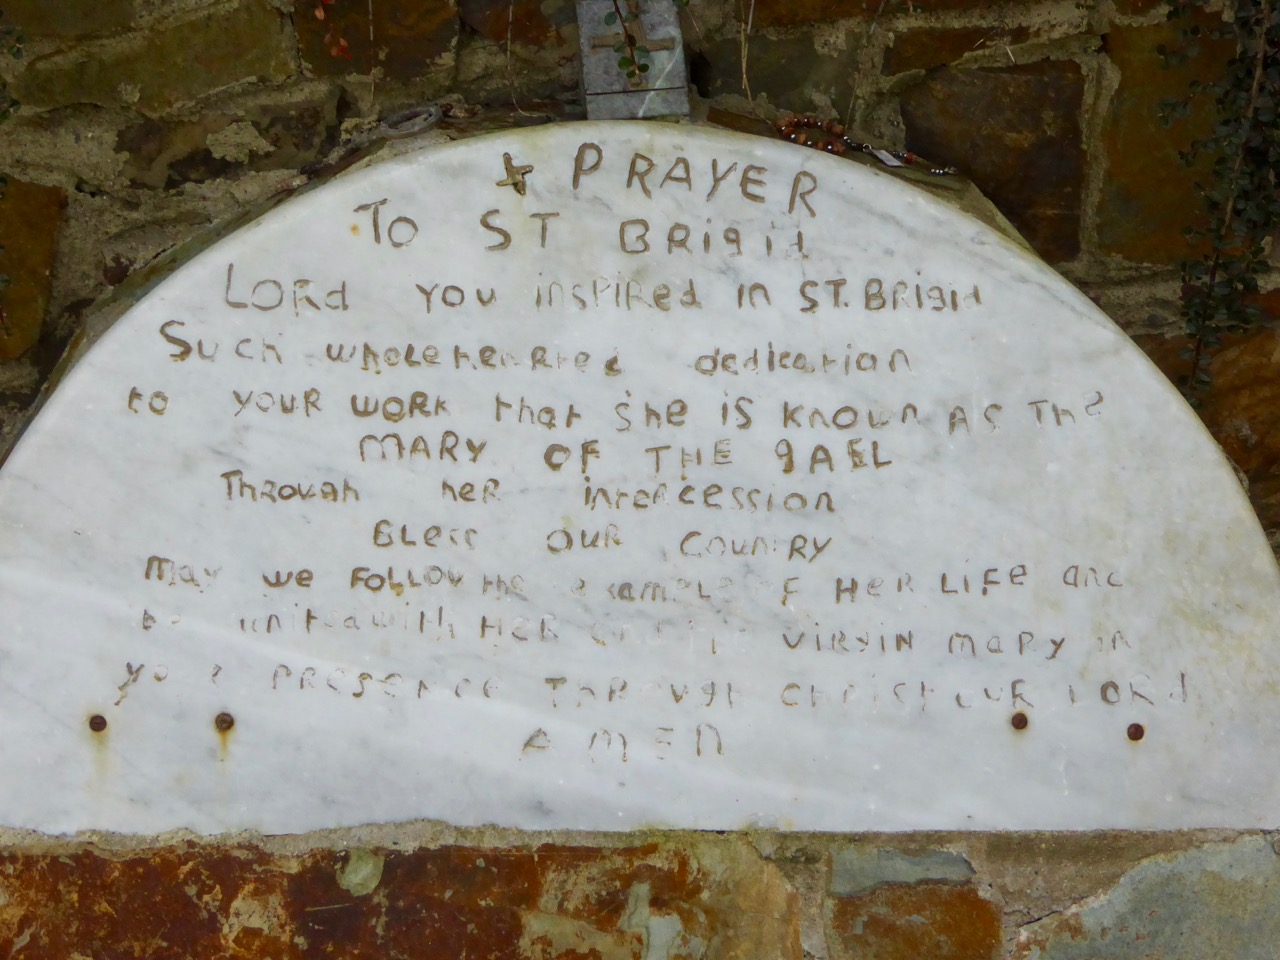 + PRAYER
To ST BRigid
LORd you inspiRed in ST. BRigid
Such wholeheaRted dedication
to youR woRk that she is known As The
MARY OF THE gAEL
ThRough heR inteRcession
BLess ouR CountRY
May we FoLLow the example oF HeR LiFe and
be united with HeR and the viRgiN maRy in
youR pResence ThRough chRist ouR LoRd
AMEN